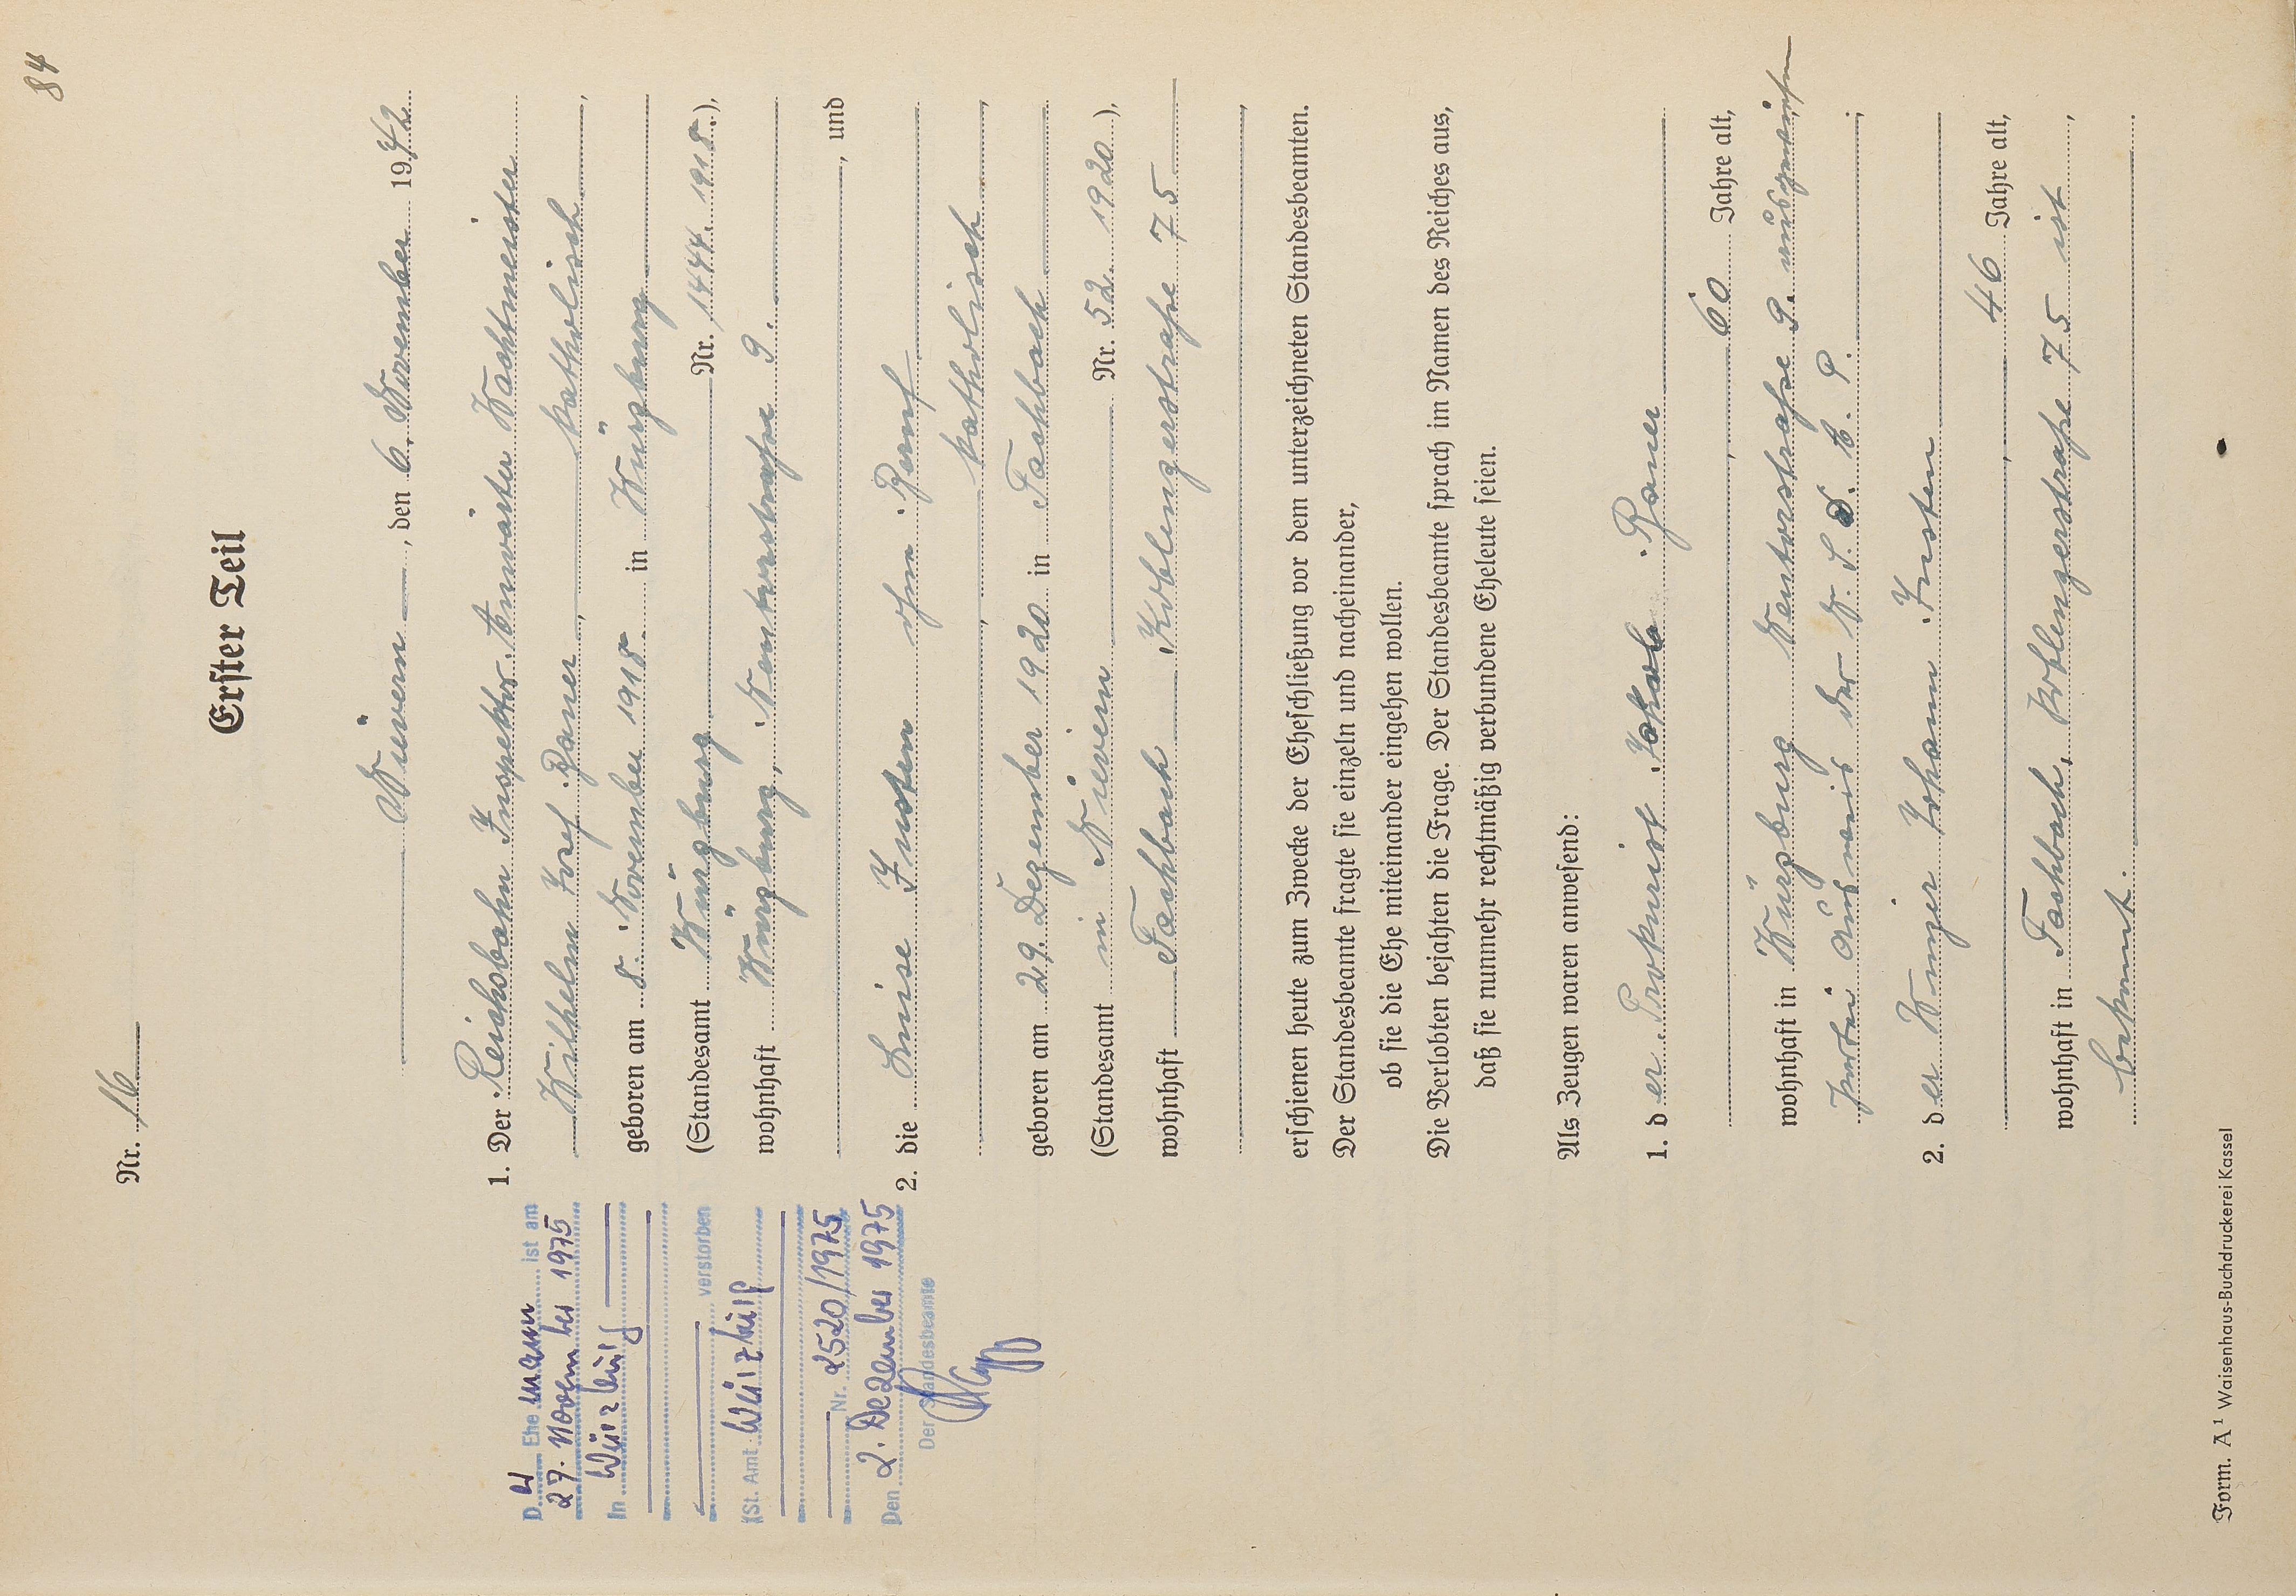 84
Nr. 16
Erster Teil
Nievern, den 6. November 1942
1. Der Reichsbahn Inspektor Anwärter Wachtmeister
Wilhelm Josef Bauer, katholisch,
geboren am 8. November 1918 in Würzburg
(Standesamt Würzburg Nr. 1444. 1918.),
wohnhaft Würzburg, Nentorstraße 9.
, und
2. die Luise Justen ohne Beruf
, katholisch,
geboren am 29. Dezember 1920 in Fachbach
(Standesamt in Nievern Nr. 52. 1920),
wohnhaft Fachbach Koblenzerstraße 75
,
erschienen heute zum Zwecke der Eheschließung vor dem unterzeichneten Standesbeamten.
Der Standesbeamte fragte sie einzeln und nacheinander,
ob sie die Ehe miteinander eingehen wollen.
Die Verlobten bejahten die Frage. Der Standesbeamte sprach im Namen des Reiches aus,
daß sie nunmehr rechtmäßig verbundene Eheleute seien.
Als Zeugen waren anwesend:
1. der Prokurist Jakob Bauer
, 60 Jahre alt,
wohnhaft in Würzburg Nentorstraße 9. ausgewiesen
Partei Ausweis der N. S. D. A. P.;
2. der Winzer Johann Justen
, 46 Jahre alt,
wohnhaft in Fachbach, Koblenzerstraße 75 ist,
bekannt.
Der Ehemann ist am
27. November 1975
In Würzburg
verstorben
(St. Amt Würzburg
Nr. 2520/1975
Den 2. Dezember 1975
Der Standesbeamte
Form. A¹ Waisenhaus-Buchdruckerei Kassel